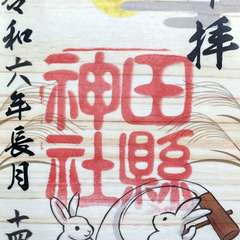 拝
田縣
神社
令和六年長月十四